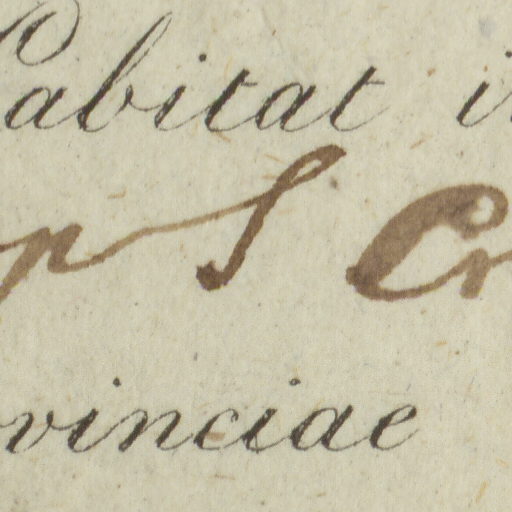 Habitat i
p S Cr
vinciae